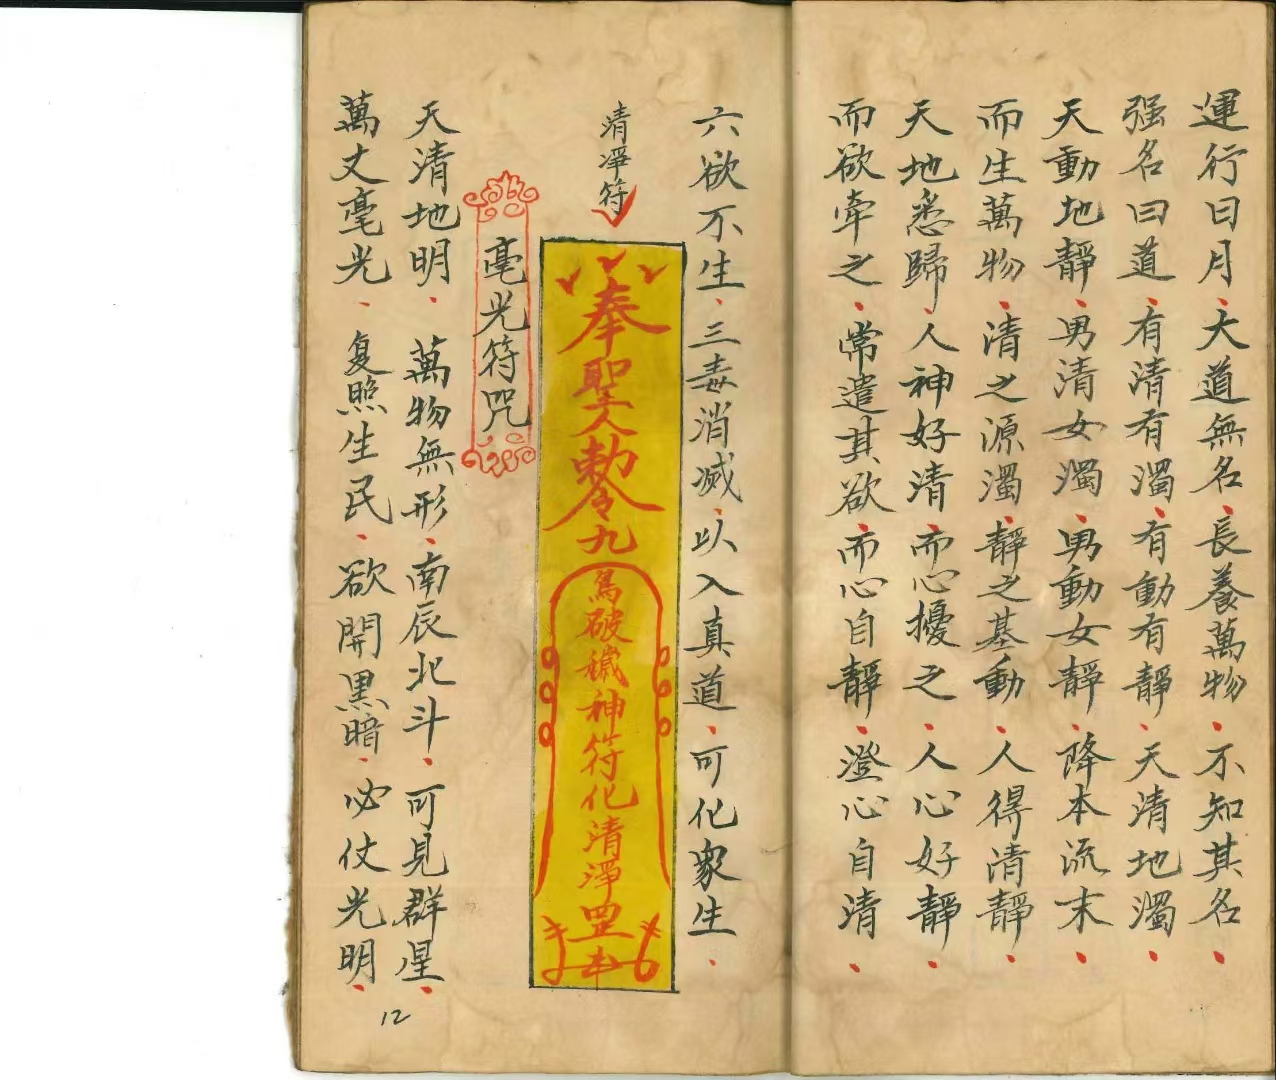 運行日月大道無名長養萬物不知其名
强名曰道有清有濁有動有靜天清地濁
天動地靜男清女濁男動女靜降本流末
而生萬物清之源濁靜之基動人得清靜
天地悉歸人神好清而心擾之人心好靜
而欲牽之常遣其欲而心自靜澄心自清
六欲不生三毒消滅以入真道可化衆生
清淨符
奉聖人敕令九
破穢神符化清淨罡
毫光符咒
天清地明萬物無形南辰北斗可見群星
萬丈毫光复照生民欲開黑暗必仗光明
12